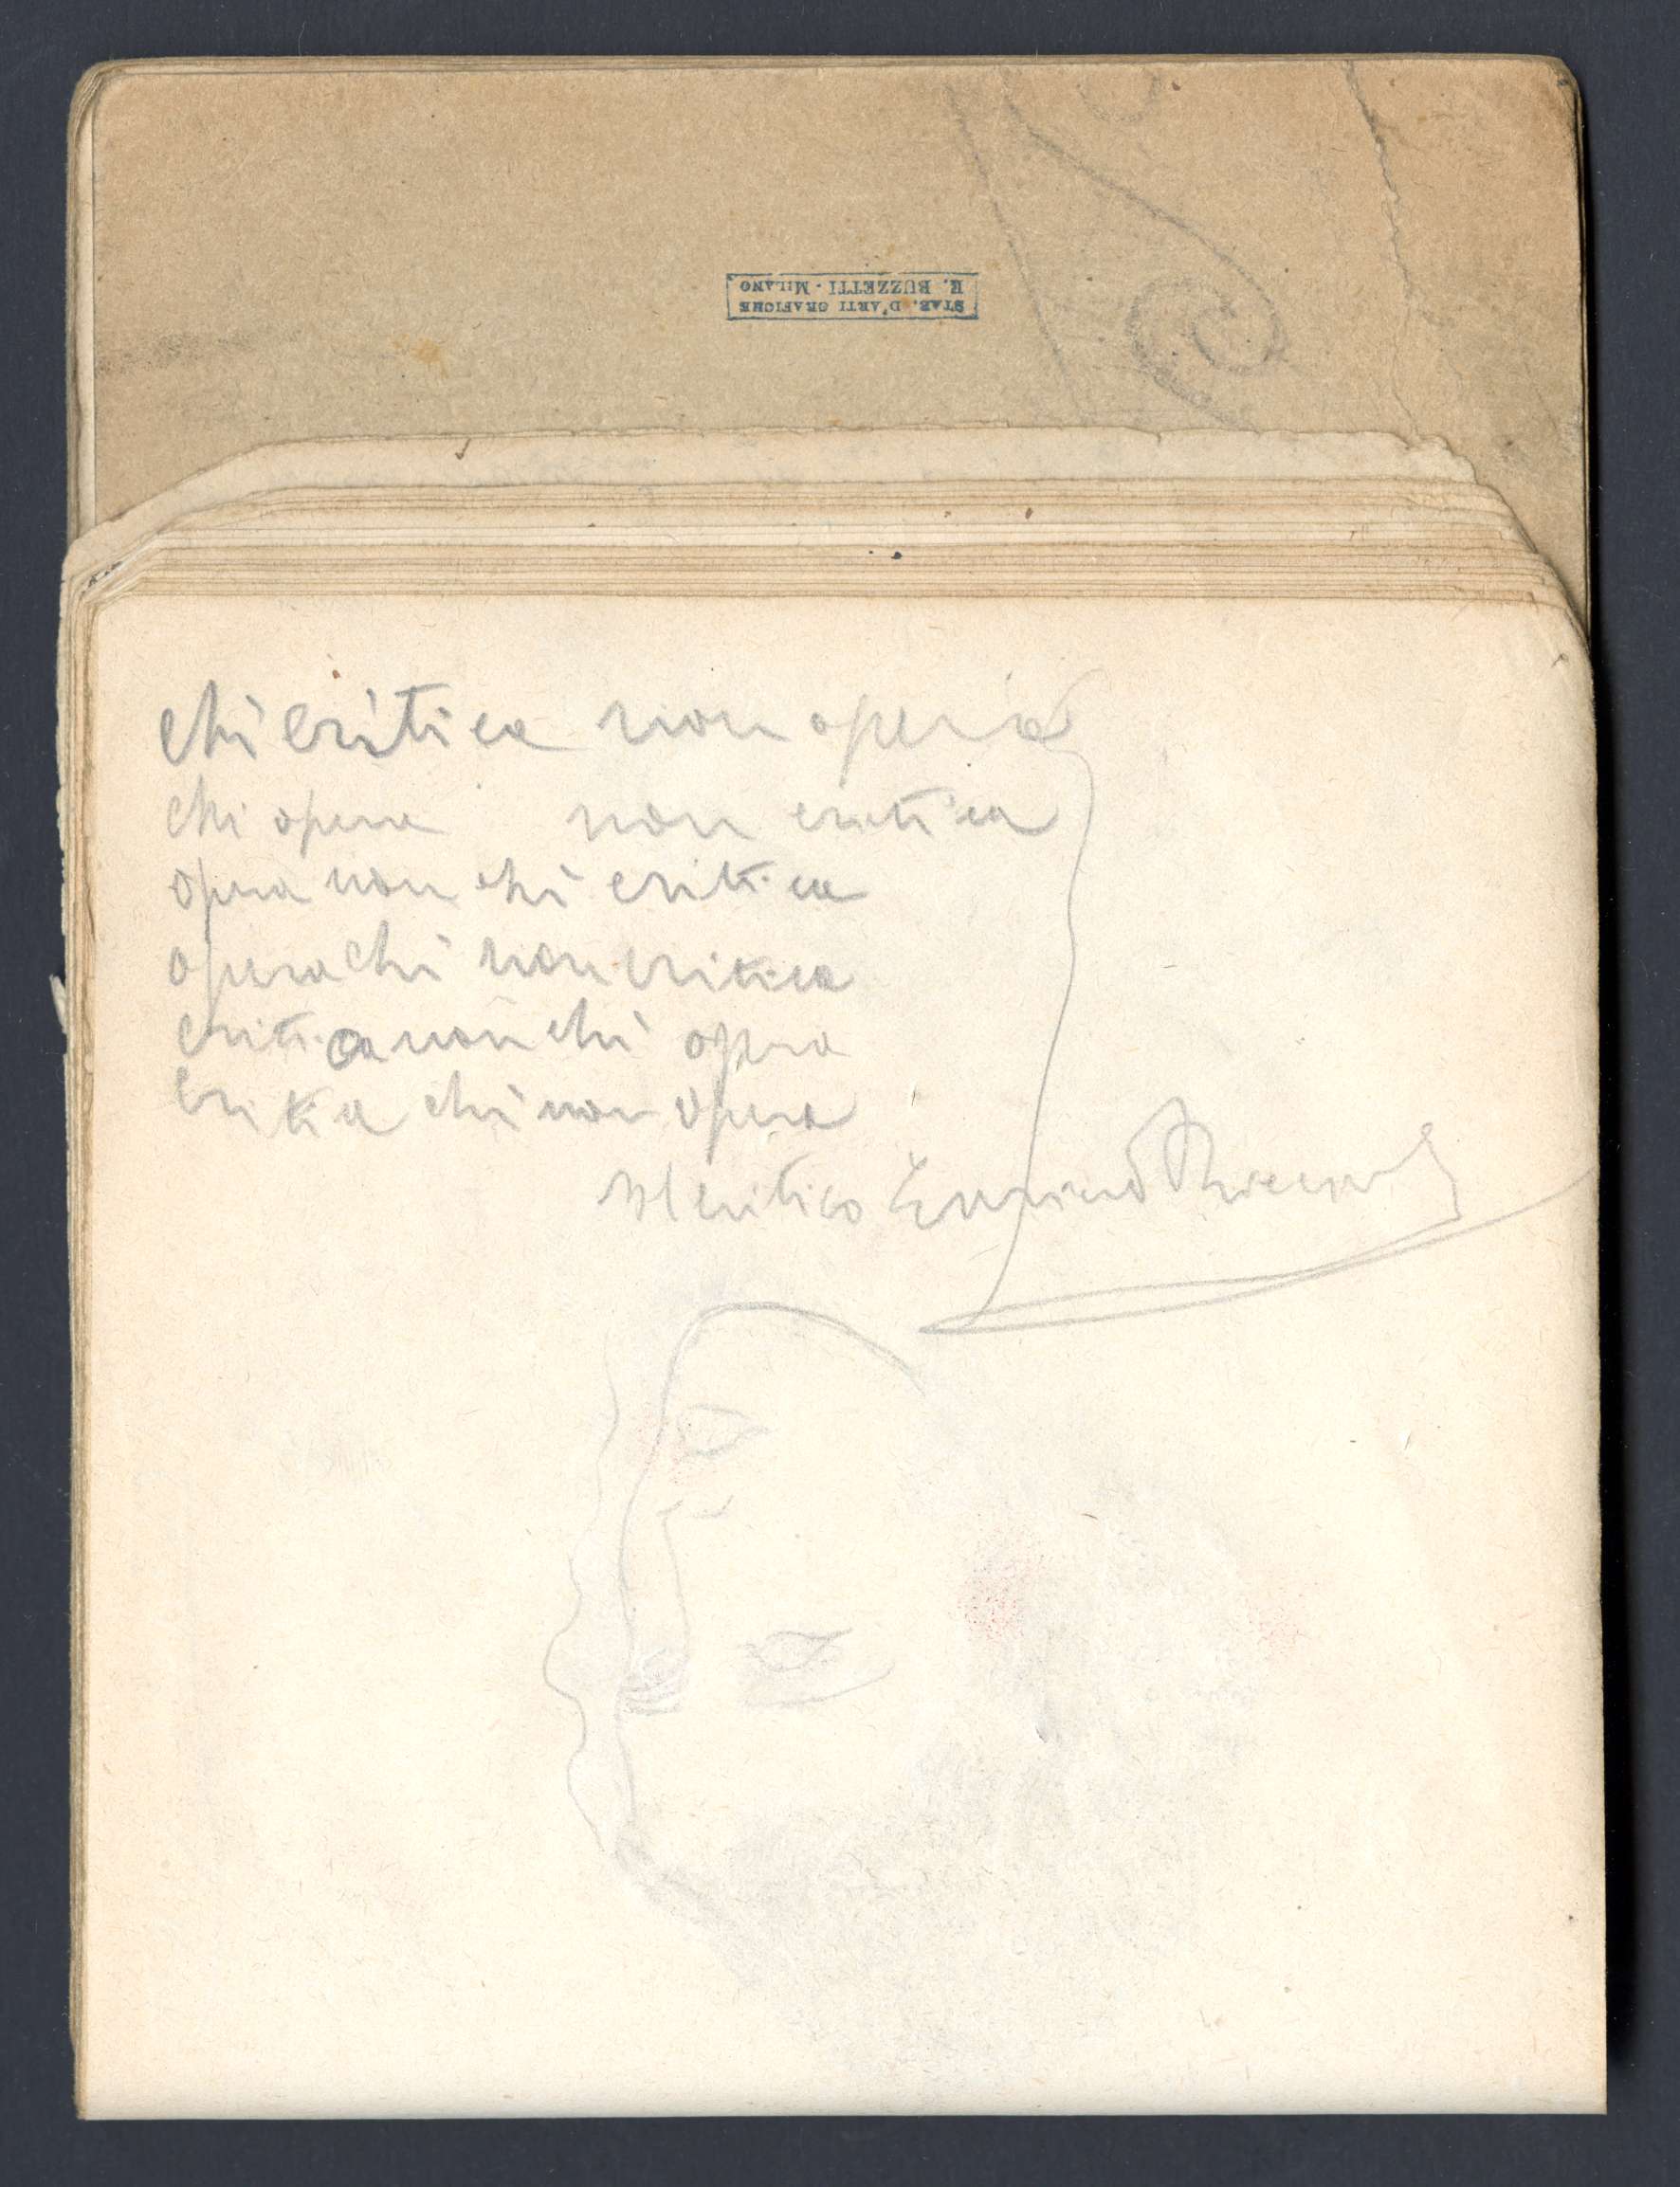 STAB. D'ARTI GRAFICHE
R. BUZZETTI - MILANO
chi critica non opera
chi opera non critica
opera non chi critica
opera chi non critica
critica non chi opera
critica chi non opera
Il critico